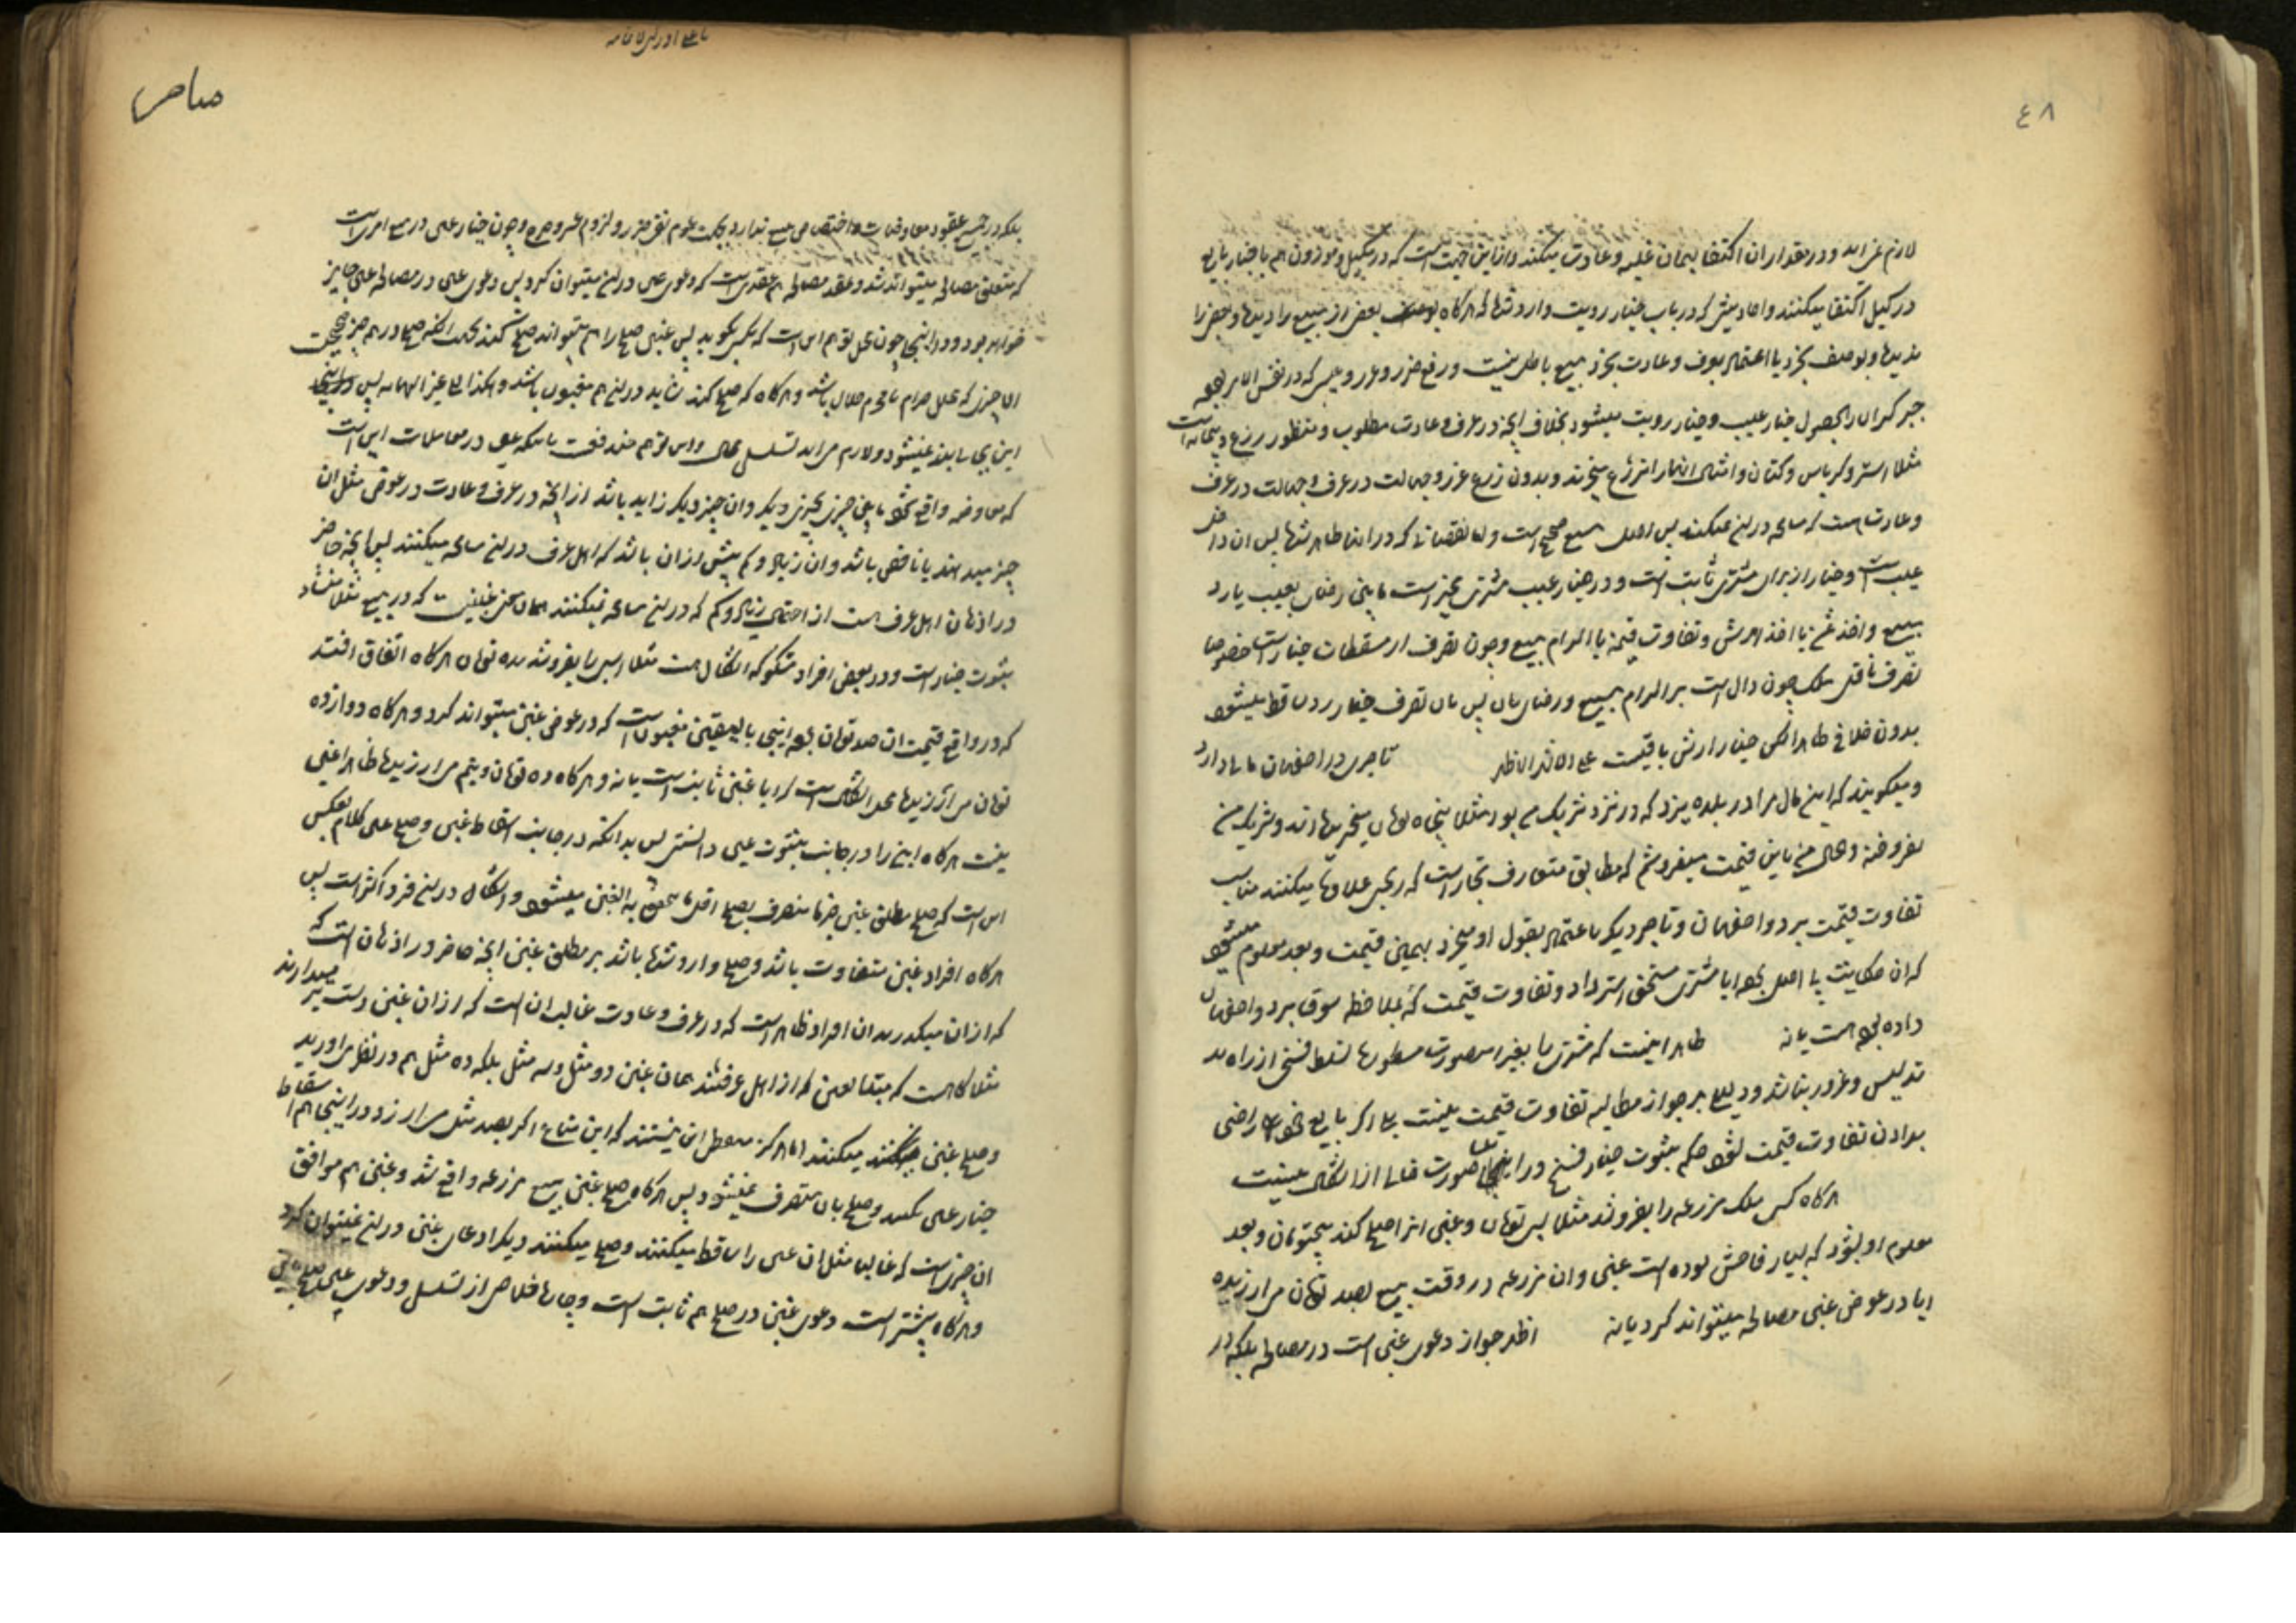 ٤٨
لازم می‌آید و در مقدار ان اکتفا بهمان غلبه و عادت میکنند و از این جهت است که در مکیل و موزون هم باخبار بایع
در کیل اکتفا میکنند و احادیثی که در باب خیار رویت وارد شده که هر گاه بعضی از مبیع را دیده و بعضی را
ندیده و بوصف بخرد یا اعتماد بعرف و عادت بخرد مبیع باطل نیست و رفع ضرر و غرر و عیبی که در نفس الامر بوده
جبر کسران بحصول خیار عیب و خیار رویت میشود بخلاف آنچه در عرف و عادت مطلوب و منظور زرع و پیمانه است
مثلا استر و کرباس و کتان و امثال انها را بزرع میخرند و بدون زرع غرر و جهالت در عرف و جهالت در عرف
و عادت است که مسامحه در ان نمیکنند پس اصل بیع صحیح است و اما نقصانی که در اینجا ظاهر شده پس ان داخل
عیب است و خیار از برای مشتری ثابت است و در خیار عیب مشتری مخیر است مابین رضای بعیب یا رد
مبیع و اخذ ثمن یا اخذ ارش و تفاوت قیمة با الزام بیع و چون تصرف از مسقطات خیار است خصوصا
تصرف ناقل ملک چون دال است بر الزام بیع و رضای بان پس بان تصرف خیار رد ساقط میشود
بدون خلافی ظاهرا لکن خیار ارش باقیست علی الاشهر الاظهر تاجری در اصفهان مالی دارد
و میگویند که این مال مرا در بلده یزد که در نزد شریک من بود مثلا پنجاه تومان میخریده اند و شریک من
نفروخته و حال من باین قیمت میفروشم که مطابق متعارف تجار است که بجبر علاوه میکنند مناسب
تفاوت قیمت یزد و اصفهان و تاجر دیگر باعتماد بقول او میخرد بهمین قیمت و بعد معلوم میشود
که ان حکایت بی اصل بوده ایا مشتری مستحق استرداد و تفاوت قیمت که بملاحظه سوق یزد و اصفهان
داده بوده است یا نه ظاهر اینست که مشتری را بغیر از صورت مسطوره تسلط فسخ از راه
تدلیس و غرور بنا شد و دلیلی بر جواز مطالبه تفاوت قیمت نیست بلی اگر بایع خود راضی
بدادن تفاوت قیمت شود حکم بثبوت خیار فسخ در اینجا صورت خالی از اشکال نیست
هر گاه کسی ملک مزرعه را بفروشد مثلا بسی تومان و غبن انرا صلح کند بپنجتومان و بعد
معلوم او بشود که بسیار فاحش بوده است غبن و ان مزرعه در وقت بیع بصد تومان می ارزیده
ایا در عوض غبن مصالحه میتواند کرد یا نه اظهر جواز دعوی غبن است در مصالحه بلکه در
بلکه در جمیع عقود معاوضات و اختصاصی ببیع ندارد بجهت عموم نفی ضرر و لزوم عسر و حرج و چون خیار غبن در بیع امری است
که متعلق مصالحه میتواند شد و عقد مصالحه هم عقدی است که دعوی غبن در ان میتوان کرد پس دعوی غبن در مصالحه غبن جایز
خواهد بود و در اینجا چون محل توهم این است که کسی بگوید پس غبن صلح را هم میتواند صلح کند بجهت انکه صلح در هر چیز صحیح است
الا چیزی که محلل حرام یا محرم حلال باشد و هر گاه که صلح کند شاید در ان هم مغبون باشد و هکذا الی غیر النهایه پس
این بجا بند نمیشود و لازم می آید تسلسل محال و این توهم مندفعست باینکه غبن در معاملات این است
که معاوضه واقع شود مابین چیزی بچیزی دیگر و ان چیز دیگر زاید باشد از آنچه در عرف و عادت در عوض مثل ان
چیز میدهند یا ناقص باشد و ان زیاد و کم بیش از ان باشد که اهل عرف در ان مسامحه میکنند پس آنچه حاضر
در اذهان اهل عرف است از احتمال زیاد و کم که در ان مسامحه نمیکنند همان غبن است که در بیع مثلا منشاء
ثبوت خیار است و در بعض افراد مشکوکه اشکال هست مثلا اسبی را بفروشد بده تومان هر گاه اتفاق افتد
که در واقع قیمت ان صد تومان بوده اینجا بالیقین مغبون است که در عوض غبن میتواند کرد و هر گاه دوازده
تومان می ارزیده محل اشکال است که ایا غبن ثابت است یا نه و هر گاه ده تومان و نیم می ارزیده ظاهرا غبنی
نیست هر گاه این را در جانب ثبوت غبن دانستی پس بدانکه در جانب اسقاط غبن و صلح غبن کلام بعکس
این است که صلح مطلق غبن جزما منصرف بصلح اقل ما یتحقق به الغبن میشود و اشکال در ان فرد اکثر است پس
هر گاه افراد غبن متفاوت باشد و صلح وارد شده باشد بر مطلق غبن آنچه حاضر در اذهان است که
که از ان میگذرند ان افراد ظاهر است که در عرف و عادت غالب ان است که از ان غبن دست بر میدارند
مثلا گاه است که متبایعین که از اهل عرفند همان غبن دو مثل و سه مثل بلکه ده مثل هم در نظر می اورند
و صلح غبن میکنند اما هرگز مطمئن این نیستند که این متاع اگر بصد مثل می ارزد در اینجا هم اسقاط
خیار غبن بکنند و صلح بان منصرف نمیشود پس هر گاه صلح غبن بیع مزرعه واقع شد و غبن هم موافق
ان چیزی است که غالبا مثل ان غبن را ساقط میکنند و صلح میکنند دیگر ادعای غبن در ان نمیتوان کرد
و هر گاه بیشتر است دعوی غبن در صلح هم ثابت است و چاره خلاص از تسلسل و دعوی غبن